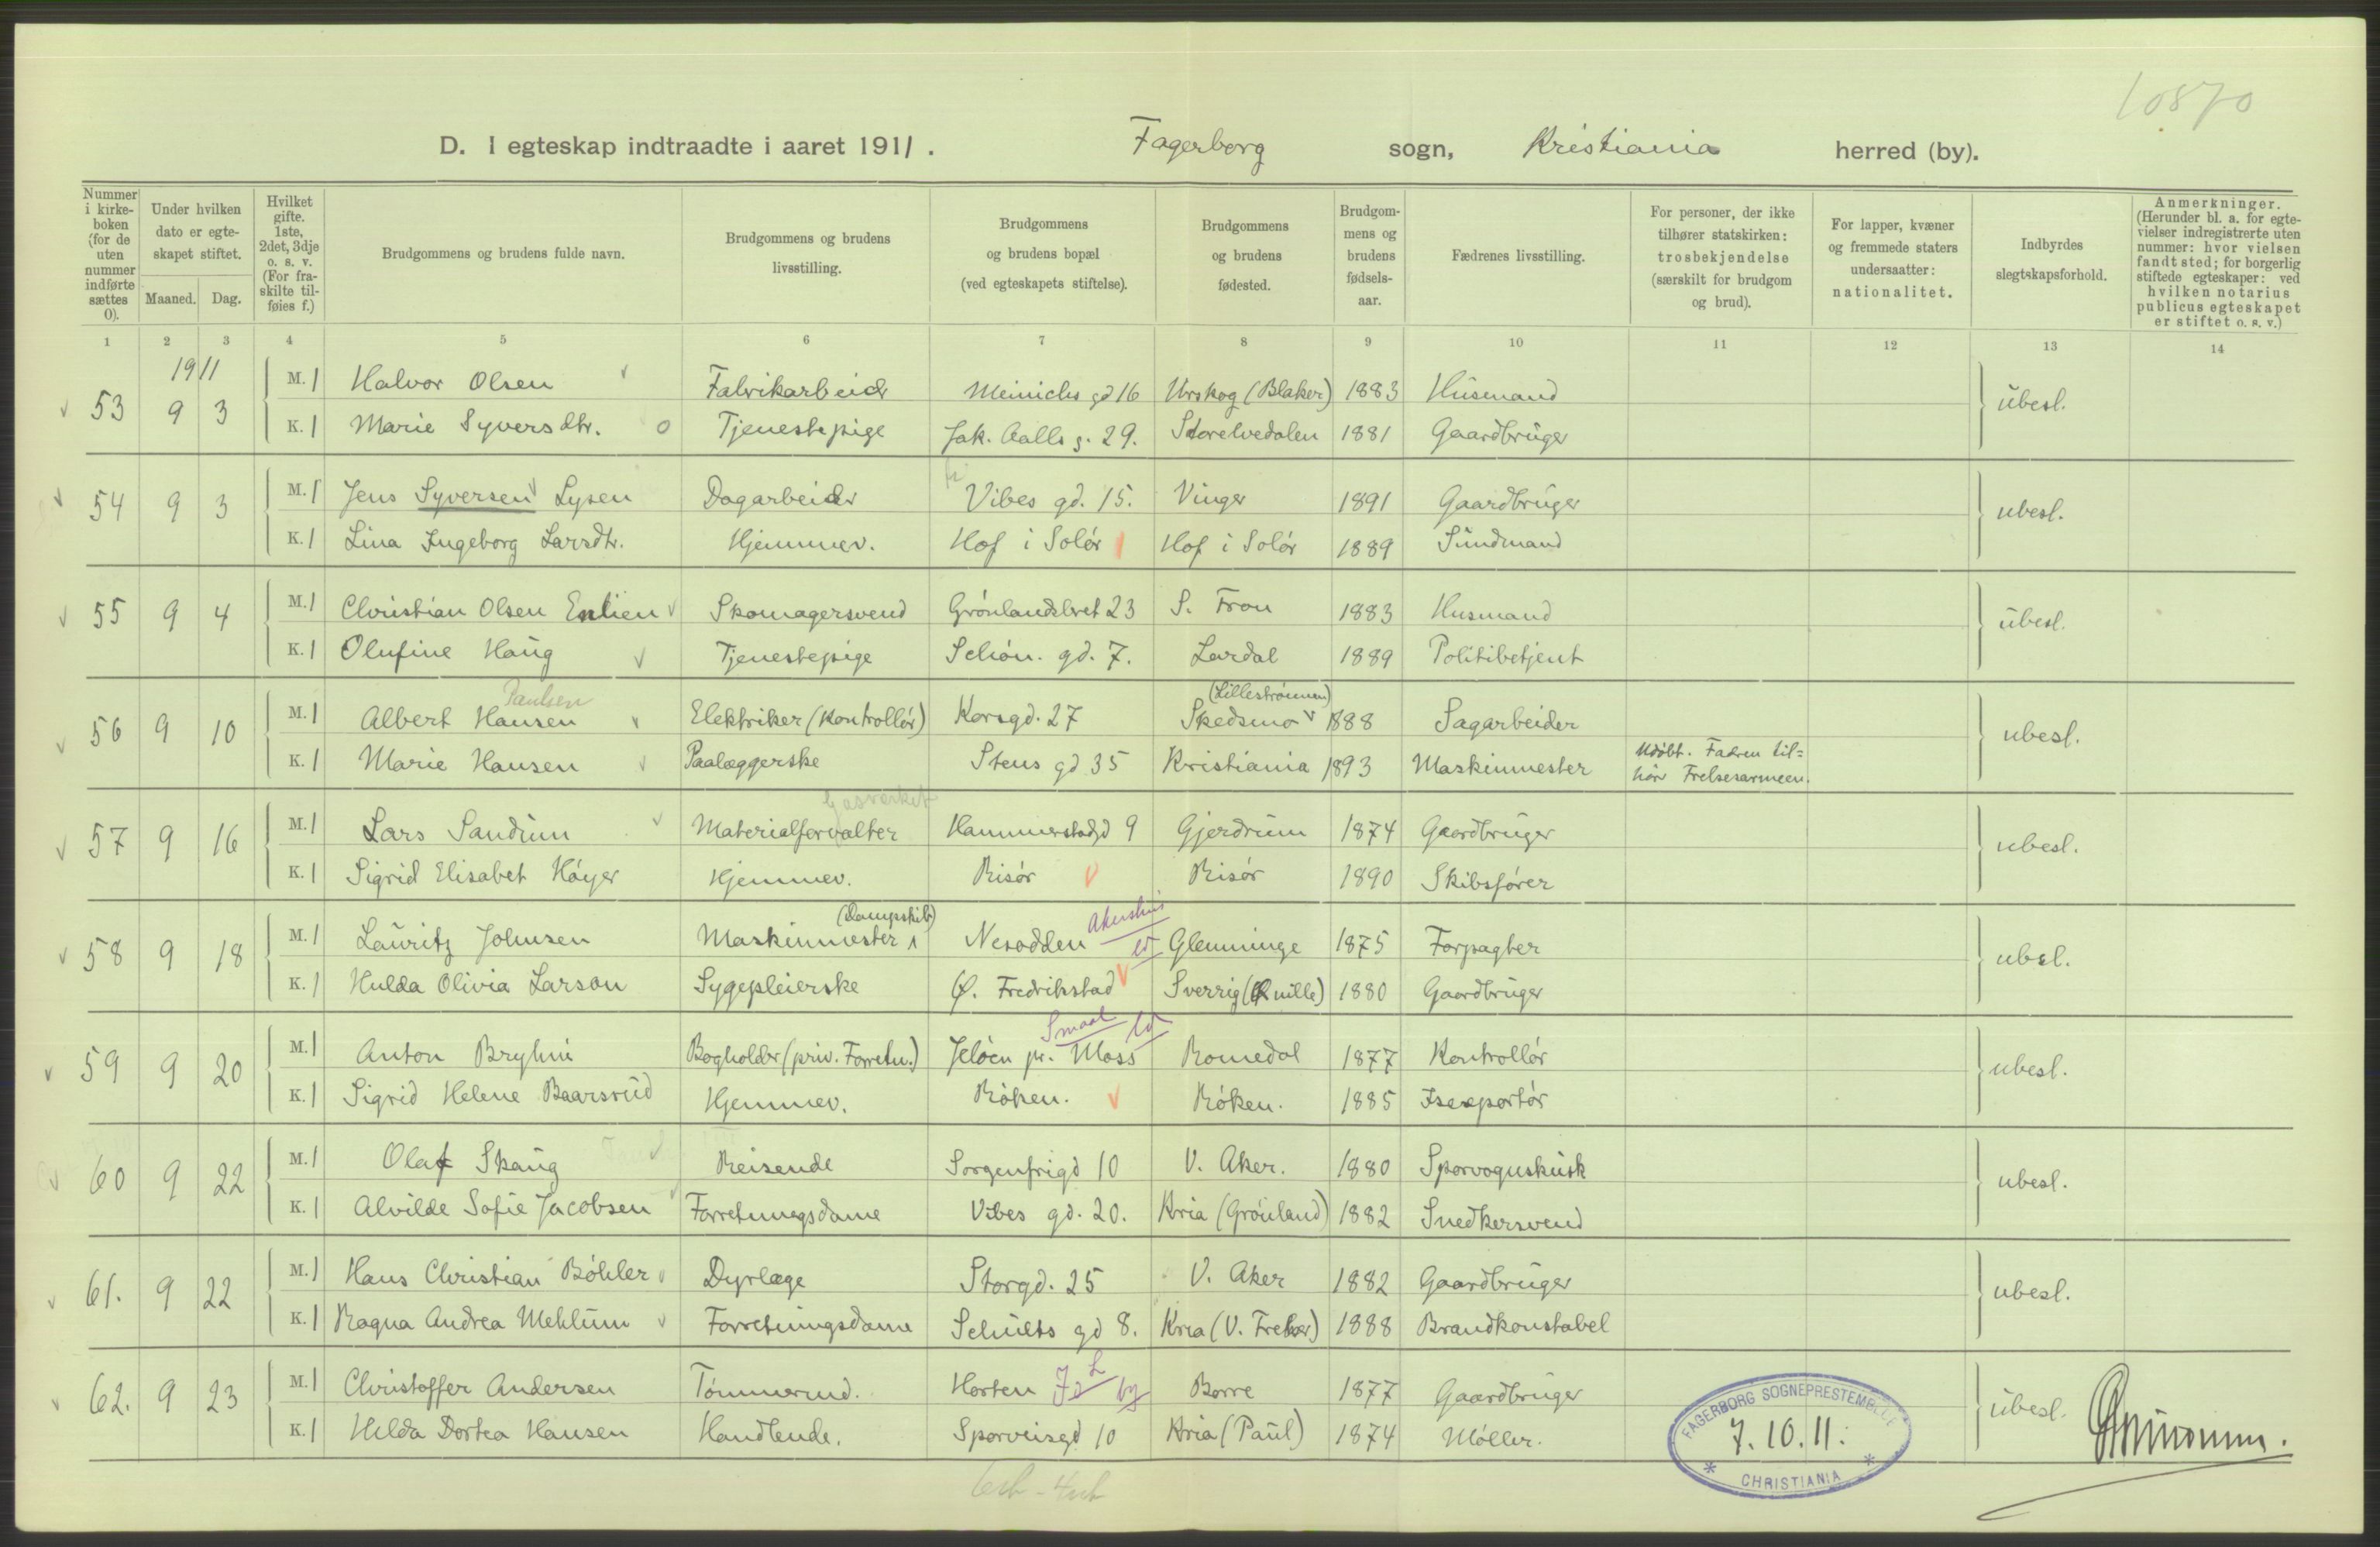 10870
D. I egteskap indtraadte i aaret 1911. Fagerborg sogn, Kristiania herred (by).
Nummer i kirke-boken (for de uten nummer indførte sættes 0). Under hvilken dato er egte-skapet stiftet. Maaned. Dag. Hvilket gifte. 1ste, 2det, 3dje o. s. v. (For fra-skilte til-føies f.) Brudgommens og brudens fulde navn. Brudgommens og brudens livsstilling. Brudgommens og brudens bopæl (ved egteskapets stiftelse). Brudgommens og brudens fødested. Brudgom-mens og brudens fødsels-aar. Fædrenes livsstilling. For personer, der ikke tilhører statskirken: trosbekjendelse (særskilt for brudgom og brud). For lapper, kvæner og fremmede staters undersaatter: nationalitet. Indbyrdes slegtskapsforhold. Anmerkninger. (Herunder bl. a. for egte-vielser indregistrerte uten nummer: hvor vielsen fandt sted; for borgerlig stiftede egteskaper: ved hvilken notarius publicus egteskapet er stiftet o. s. v.)
1 2 3 4 5 6 7 8 9 10 11 12 13 14
1911
53 9 3 M. 1 Halvor Olsen Fabrikarbeider Meinichs gd 16 Urskog (Blaker) 1883 Husmand ubesl.
K. 1 Marie Syversdtr. Tjenestepige Jak. Aalls g. 29. Storelvedalen 1881 Gaardbruger
54 9 3 M. 1 Jens Syversen Lysen Dagarbeider Vibes gd. 15. Vinger 1891 Gaardbruger ubesl.
K. 1 Lina Ingeborg Larsdtr. Hjemmev. Hof i Solør Hof i Solør 1889 Sundmand
55 9 4 M. 1 Christian Olsen Enlien Skomagersvend Grønlandslret 23 S. Fron 1883 Husmand ubesl.
K. 1 Olufine Haug Tjenestepige Schøn. gd. 7. Lardal 1889 Politibetjent
Paulsen (Lillestrømmen)
56 9 10 M. 1 Albert Hansen Elektriker (Kontrollør) Korsgd. 27 Skedsmo 1888 Sagarbeider ubesl.
K. 1 Marie Hansen Paalæggerske Stens gd 35 Kristiania 1893 Maskinmester Udøbt. Faderen til-hør Frelsesarmeen.
Gasverket
57 9 16 M. 1 Lars Sandum Materialforvalter Hammerstadgd 9 Gjerdrum 1874 Gaardbruger ubesl.
K. 1 Sigrid Elisabet Høyer Hjemmev. Risør Risør 1890 Skibsfører
(Dampskib) Akershus
58 9 18 M. 1 Lauritz Johnsen Maskinmester Nesodden ld Glemminge 1875 Forpagter ubesl.
K. 1 Hulda Olivia Larson Sygepleierske Ø. Fredrikstad Sverrig (Qville) 1880 Gaardbruger
Smaal ld
59 9 20 M. 1 Anton Bryhni Bogholder (priv. Forretn.) Jeløen pr. Moss Romedal 1877 Kontrollør ubesl.
K. 1 Sigrid Helene Baarsrud Hjemmev. Røken. Røken. 1885 Isexportør
60 9 22 M. 1 Olaf Skaug Reisende Sorgenfrigd 10 V. Aker. 1880 Sporvognskusk ubesl.
K. 1 Alvilde Sofie Jacobsen Forretningsdame Vibes gd. 20. Kria (Grønland) 1882 Snedkersvend
61. 9 22 M. 1 Hans Christian Bøhler Dyrlæge Storgd. 25 V. Aker 1882 Gaardbruger ubesl.
K. 1 Ragna Andrea Mehlum Forretningsdame Schults gd 8. Kria (V. Freker) 1888 Brandkonstabel
62. 9 23 M. 1 Christoffer Andersen Tømmermd. Horten J L by Borre 1877 Gaardbruger ubesl.
K. 1 Helda Dortea Hansen Handlende. Sporveisgd 10 Kria (Paul) 1874 Møller.
FAGERBORG SOGNEPRESTEMBEDE
7.10.11.
* CHRISTIANIA *